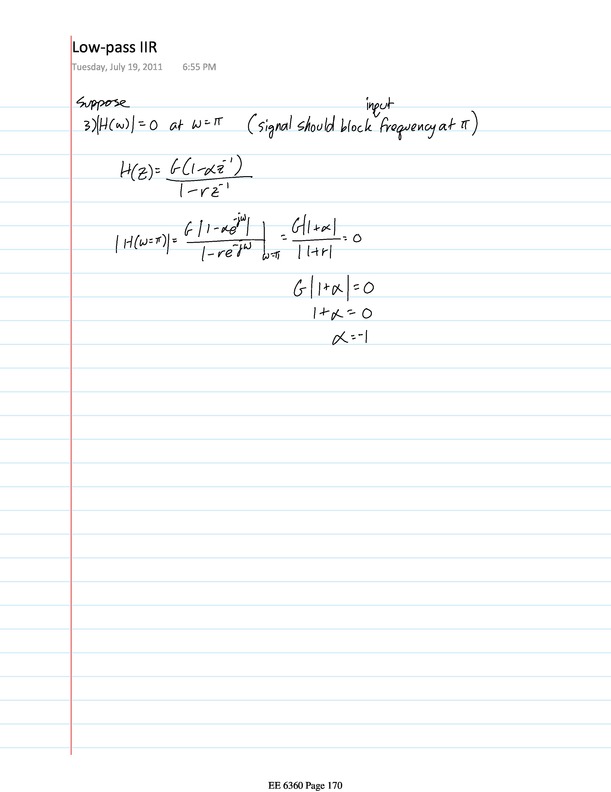 Low-pass IIR
Tuesday, July 19, 2011 6:55 PM
Suppose
input
3) |H(ω)| = 0 at ω = π (signal should block frequency at π)
H(z) = G(1-αz⁻¹) / 1-rz⁻¹
|H(ω=π)| = G|1-αe^-jω| / 1-re^-jω | ω=π = G|1+α| / |1+r| = 0
G|1+α| = 0
1+α = 0
α = -1
EE 6360 Page 170